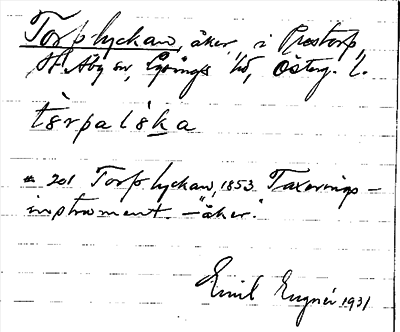 Torplyckan, åker, i Prestorp,
V. Åby sn, Lysings hd, Österg. l.
tàrpalíska
# 201 Torplyckan, 1853 Taxerings-
instrument. – "åker".
Emil Eugnér 1931